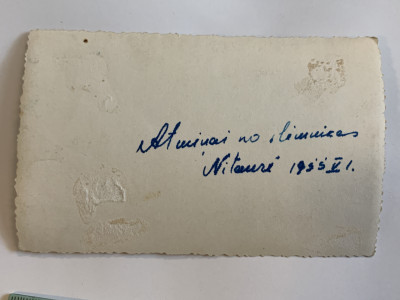 Atmiņai no slimnicas
"Nītaurē" 1955 V 1.